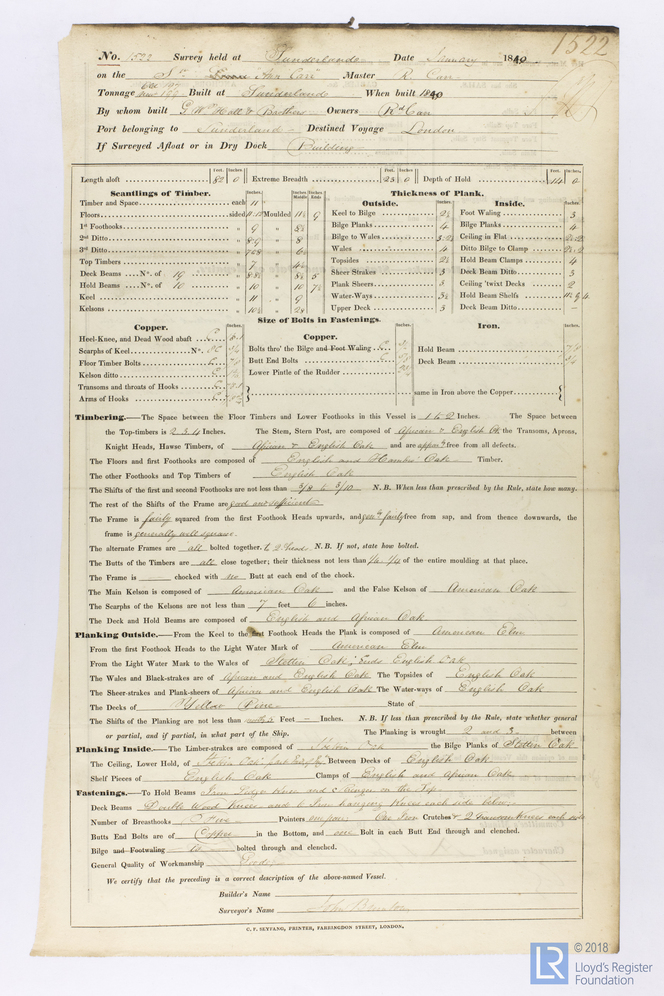 1522
No. 1522 Survey held at Sunderland Date January 1840
on the Sr Ann Carr Master R. Carr
Tonnage Built at Sunderland When built 1840
By whom built G. W. Hall & Brothers Owners Rd Carr
Port belonging to Sunderland Destined Voyage London
If Surveyed Afloat or in Dry Dock Building
Feet. Inches. Feet. Inches. Feet. Inches.
Length aloft 82 0 Extreme Breadth 23 Depth of Hold 14 0
Scantlings of Timber. Thickness of Plank.
Inches. Inches Moulded Inches Outside. Inches. Inside. Inches.
Timber and Space each 11 Keel to Bilge 2½ Foot Waling 3
Floors sided Moulded 9 Bilge Planks 4 Bilge Planks 4
1st Foothooks " 9 " Bilge to Wales Ceiling in Flat
2nd Ditto " " 8 Wales 4 Ditto Bilge to Clamp
3rd Ditto " " Topsides 2½ Hold Beam Clamps 4
Top Timbers " 7 " Sheer Strakes 3 Deck Beam Ditto 3
Deck Beams No. of 19 " " 5 Plank Sheers 3 Ceiling 'twixt Decks 2
Hold Beams No. of 10 " 10 " 10 Water-Ways Hold Beam Shelfs
Keel " 11 " 9 Upper Deck 3 Deck Beam Ditto
Kelsons " 10½ "
Size of Bolts in Fastenings.
Copper. Inches. Copper. Inches. Iron. Inches.
Heel-Knee, and Dead Wood abaft Bolts thro' the Bilge and Foot Waling
Scarphs of Keel No. Butt End Bolts Hold Beam
Floor Timber Bolts Lower Pintle of the Rudder Deck Beam
Kelson ditto
Transoms and throats of Hooks same in Iron above the Copper
Arms of Hooks
Timbering.—The Space between the Floor Timbers and Lower Foothooks in this Vessel is 1 to 2 Inches. The Space between
the Top-timbers is 2 3 4 Inches. The Stem, Stern Post, are composed of African & English Ok, the Transoms, Aprons,
Knight Heads, Hawse Timbers, of African & English Oak and are free from all defects.
The Floors and first Foothooks are composed of English and Hambro' Oak Timber.
The other Foothooks and Top Timbers of English Oak
The Shifts of the first and second Foothooks are not less than N. B. When less than prescribed by the Rule, state how many.
The rest of the Shifts of the Frame are good and sufficient
The Frame is fairly squared from the first Foothook Heads upwards, and fairly free from sap, and from thence downwards, the
frame is generally well square.
The alternate Frames are all bolted together. N. B. If not, state how bolted.
The Butts of the Timbers are all close together; their thickness not less than of the entire moulding at that place.
The Frame is chocked with no Butt at each end of the chock.
The Main Kelson is composed of American Oak and the False Kelson of American Oak
The Scarphs of the Kelsons are not less than 7 feet 6 inches.
The Deck and Hold Beams are composed of English and African Oak
Planking Outside.—From the Keel to the first Foothook Heads the Plank is composed of American Elm
From the first Foothook Heads to the Light Water Mark of American Elm
From the Light Water Mark to the Wales of Stettin Oak, Ends English Oak
The Wales and Black-strakes are of African and English Oak The Topsides of English Oak
The Sheer-strakes and Plank-sheers of African and English Oak The Water-ways of English Oak
The Decks of Yellow Pine State of
The Shifts of the Planking are not less than Feet Inches. N. B. If less than prescribed by the Rule, state whether general
or partial, and if partial, in what part of the Ship. The Planking is wrought 2 and 3 between
Planking Inside.—The Limber-strakes are composed of Stettin Oak the Bilge Planks of Stettin Oak
The Ceiling, Lower Hold, of Stettin Oak Between Decks of English Oak
Shelf Pieces of English Oak Clamps of English and African Oak
Fastenings.—To Hold Beams Iron
Deck Beams Double Wood Knees and 6 Iron hanging Knees each side below
Number of Breasthooks Five Pointers one pair Iron Crutches & 2 transom knees each side
Butts End Bolts are of Copper in the Bottom, and one Bolt in each Butt End through and clenched.
Bilge and Footwaling bolted through and clenched.
General Quality of Workmanship Good
We certify that the preceding is a correct description of the above-named Vessel.
Builder's Name
Surveyor's Name John Brunton
C. F. SEYFANG, PRINTER, FARRINGDON STREET, LONDON.
LR © 2018
Lloyd's Register
Foundation